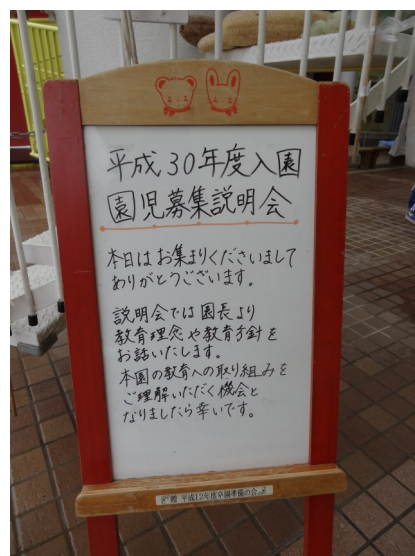 平成30年度入園
園児募集説明会
本日はお集まりくださいまして
ありがとうございます。
説明会では園長より
教育理念や教育方針を
お話いたします。
本園の教育への取り組みを
ご理解いただく機会と
なりましたら幸いです。
贈 平成12年度卒園準備の会